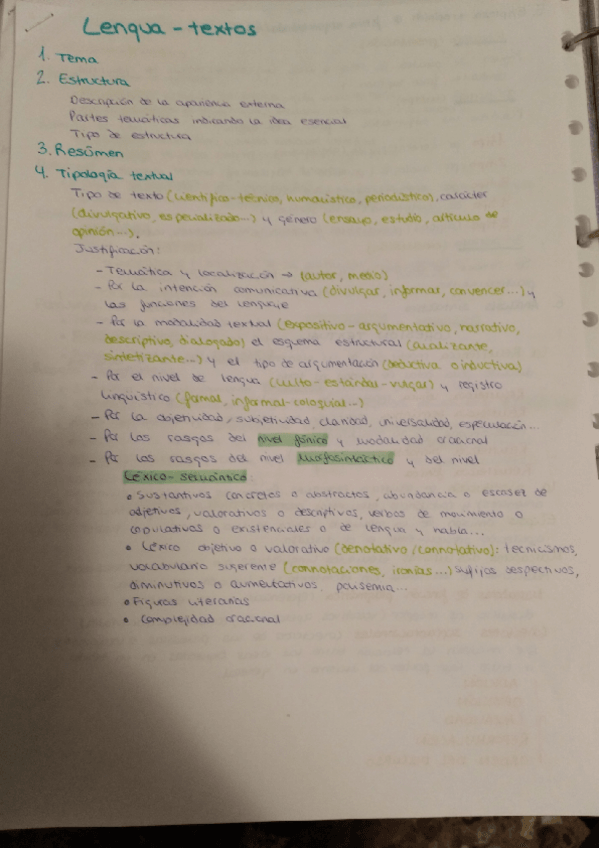 Lengua - textos
1. Tema
2. Estructura
Descripción de la apariencia externa
Partes temáticas indicando la idea esencial
Tipo de estructura
3. Resúmen
4. Tipología textual
Tipo de texto (científico-técnico, humanístico, periodístico), carácter
(divulgativo, especializado...) y género (ensayo, estudio, artículo de
opinión...).
Justificación:
- Temática y localización → (autor, medio)
- Por la intención comunicativa (divulgar, informar, convencer...) y
las funciones del lenguaje
- Por la modalidad textual (expositivo-argumentativo, narrativo,
descriptivo, dialogado) el esquema estructural (analizante,
sintetizante...) y el tipo de argumentación (deductiva o inductiva)
- Por el nivel de lengua (culto-estándar-vulgar) y registro
lingüístico (formal, informal-coloquial...)
- Por la objetividad, subjetividad, claridad, universalidad, especulación...
- Por los rasgos del nivel fónico y modalidad oracional
- Por los rasgos del nivel morfosintáctico y del nivel
Léxico-semántico:
• Sustantivos concretos o abstractos, abundancia o escasez de
adjetivos, valorativos o descriptivos, verbos de movimiento o
copulativos o existenciales o de lengua y habla...
• Léxico objetivo o valorativo (denotativo/connotativo): tecnicismos,
vocabulario sugerente (connotaciones, ironías...) sufijos despectivos,
diminutivos o aumentativos, polisemia...
• Figuras literarias
• Complejidad oracional